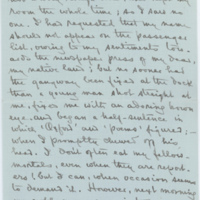 room the whole time; so I saw no
one. I had requested that my name
should not appear on the passenger
list, owing to my sentiments tow-
ards the newspaper press of my dear
my native land; but no sooner had
the gangway been fixed at the dock
than a young man shot straight at
me, fixed me with an adoring brown
eye, and began a half-sentence in
which "Oxford" and "poems" figured;
when I promptly chewed off his
head. I don't often eat my fellow-
mortals, even when they are report-
ers; but I can, when occasion seems
to demand it. However, next morning